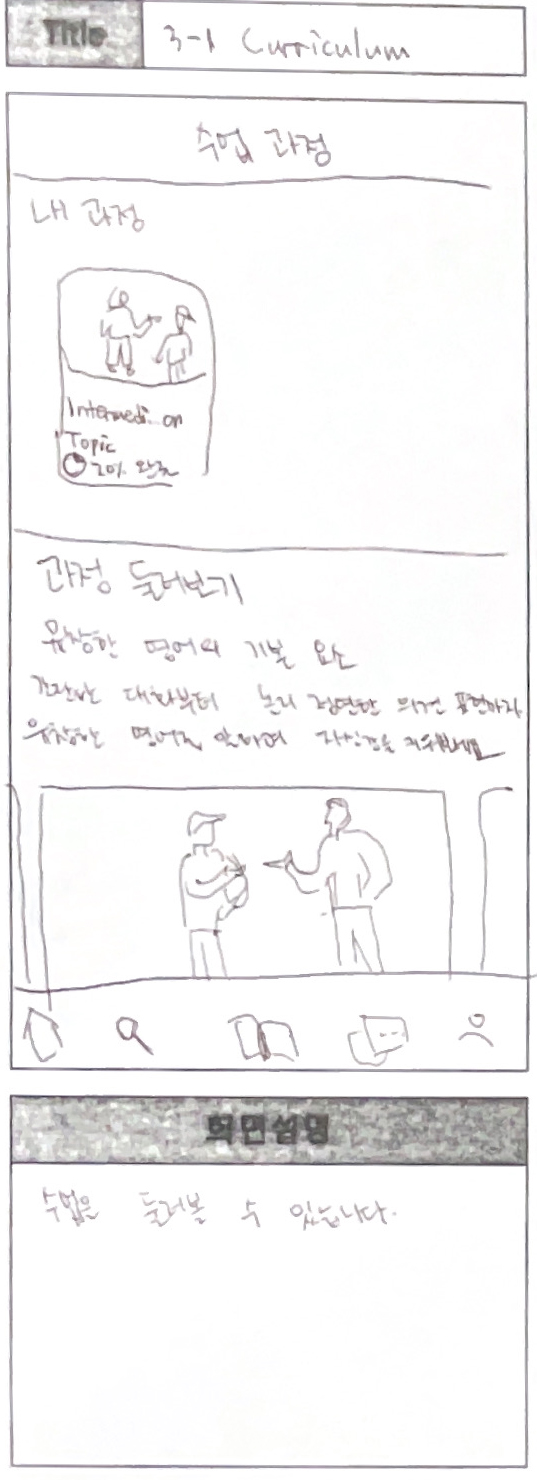 Title
3-1 Curriculum
수업 과정
내 과정
Intermedi...on
Topic
20% 완료
과정 둘러보기
유창한 영어의 기본 요소
간단한 대화부터 논리 정연한 의견 표현까지
유창한 영어를 말하며 자신감을
화면설명
수업을 둘러볼 수 있습니다.